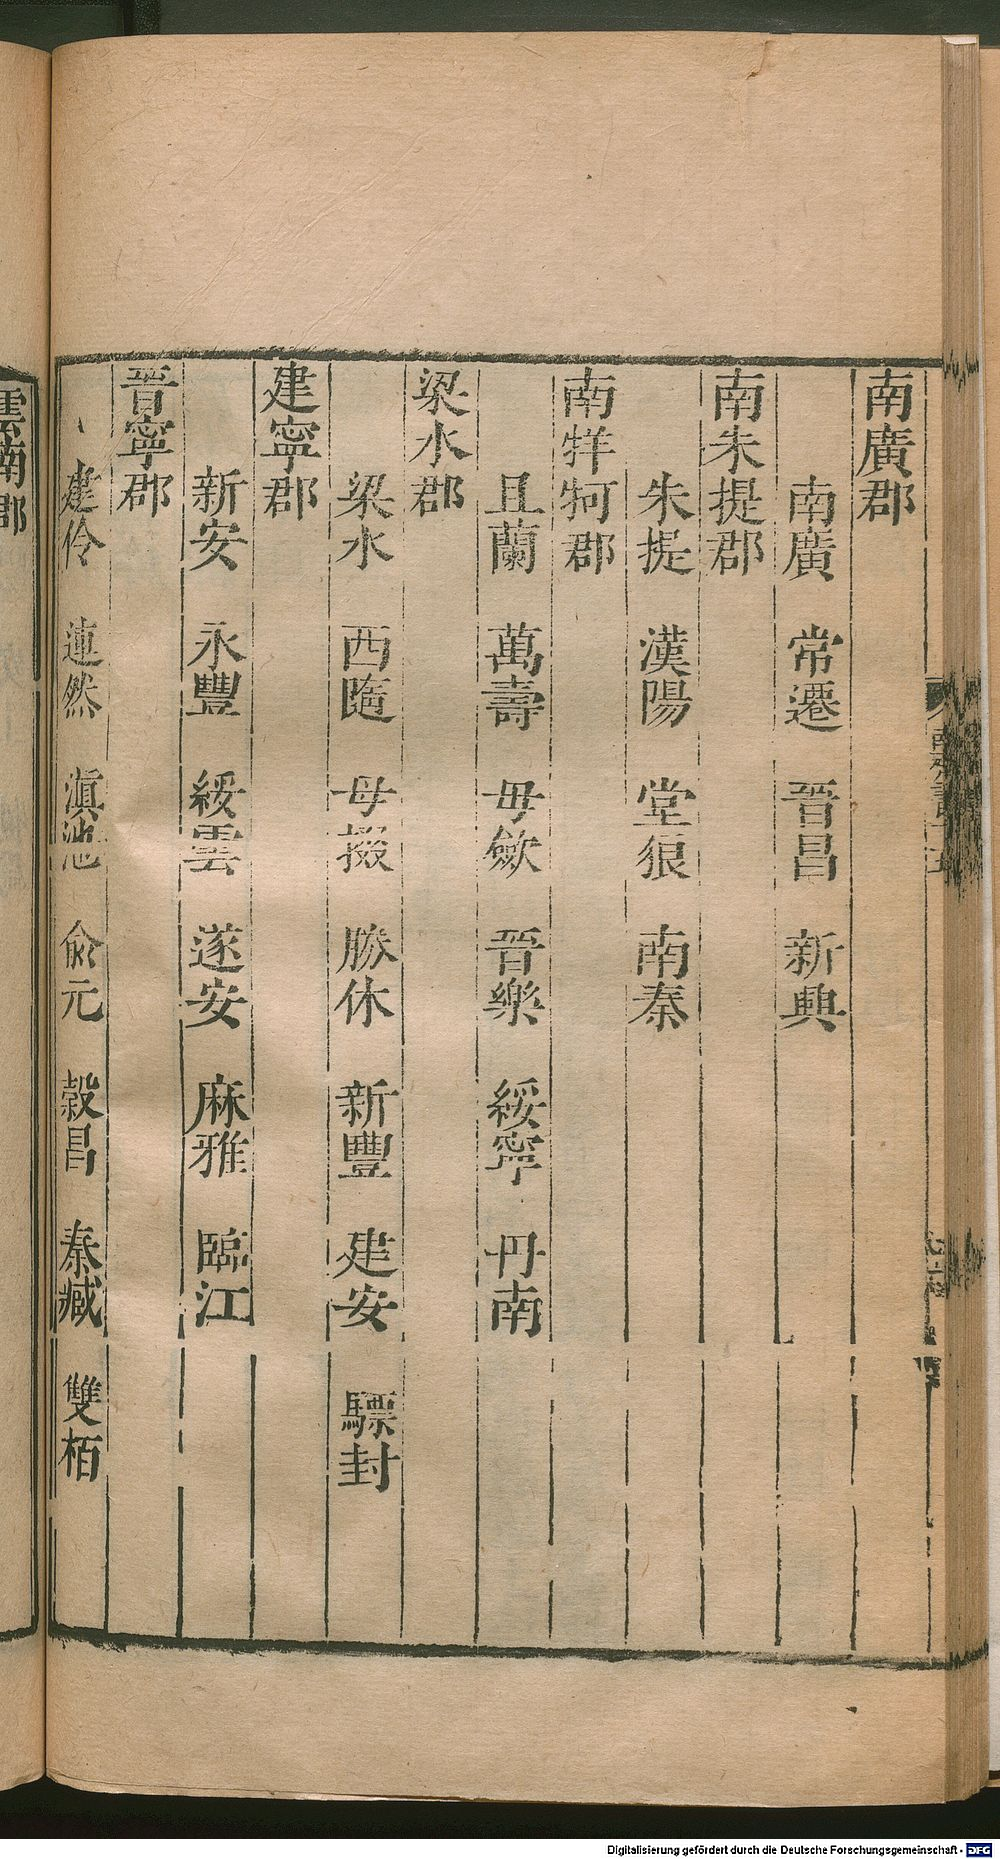 南廣郡
南廣　常遷　晉昌　新興
南朱提郡
朱提　漢陽　堂狼　南秦
南牂牁郡
且蘭　萬壽　毋斂　晉樂　綏寧　丹南
梁水郡
梁水　西隨　母掇　勝休　新豐　建安　驃封
建寧郡
新安　永豐　綏雲　遂安　麻雅　臨江
晉寧郡
建伶　連然　滇池　俞元　榖昌　秦臧　雙栢
雲南郡
Digitalisierung gefördert durch die Deutsche Forschungsgemeinschaft - DFG